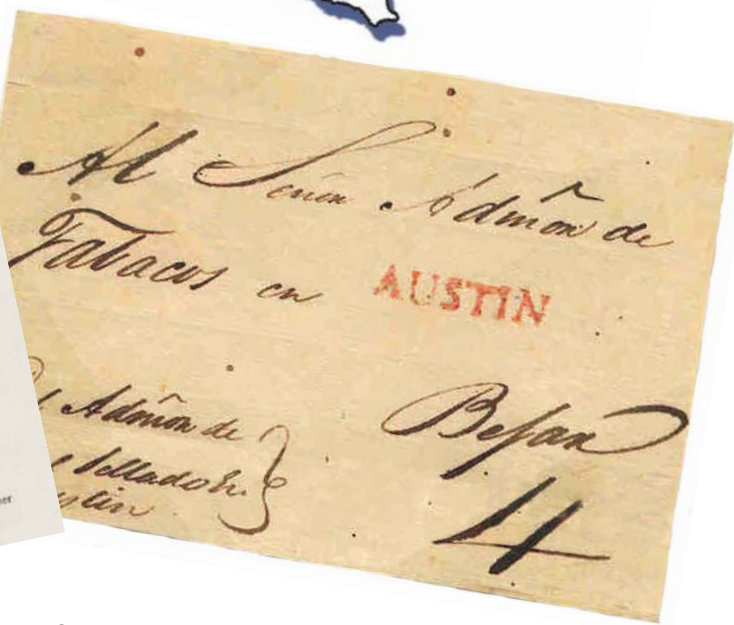 Al Señor Admõn de
Tabacos en
AUSTIN
Bejar
4
Admõn de
Sellado En
stin
er